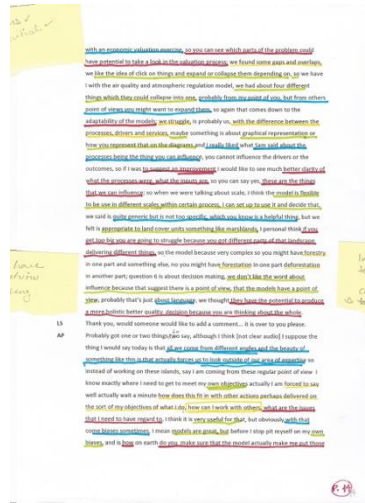 with an economic valuation exercise, so you can see which parts of the problem could
have potential to take a look in the valuation process; we found some gaps and overlaps,
we like the idea of click on things and expand or collapse them depending on, so we have
I with the air quality and atmospheric regulation model, we had about four different
things which they could collapse into one, probably from my point of you, but from others
point of views you might want to expand them, so again that comes down to the
adaptability of the models; we struggle, is probably us, with the difference between the
processes, drivers and services, maybe something is about graphical representation or
how you represent that on the diagrams and I really liked what Sam said about the
processes being the thing you can influence, you cannot influence the drivers or the
outcomes, so if I was to suggest an improvement I would like to see much better clarity of
what the processes were, what the inputs are, so you can say yes, these are the things
that we can influence; so when we were talking about scale, I think the model is flexible
to be use in different scales within certain process, I can set up to use it and decide that,
we said is quite generic but is not too specific, which you know is a helpful thing, but we
felt is appropriate to land cover units something like marshlands, I personal think if you
get too big you are going to struggle because you got different parts of that landscape
delivering different things, so the model because very complex so you might have forestry
in one part and something else, no you might have forestation in one part deforestation
in another part; question 6 is about decision making, we don't like the word about
influence because that suggest there is a point of view, that the models have a point of
view, probably that's just about language, we thought they have the potential to produce
a more holistic better quality, decision because you are thinking about the whole.
LS Thank you, would someone would like to add a comment... it is over to you please.
AP Probably got one or two things, to say, although I think [not clear audio] I suppose the
thing I would say today is that all are come from different angles and the beauty of
something like this is that actually forces us to look outside of our area of expertise so
instead of working on these islands, say I am coming from these regular point of view I
know exactly where I need to get to meet my own objectives actually I am forced to say
well actually wait a minute how does this fit in with other actions perhaps delivered on
the sort of my objectives of what I do, how can I work with others, what are the issues
that I need to have regard to. I think it is very useful for that, but obviously with that
come biases sometimes, I mean models are great, but before I stop pit myself on my own
biases, and is how on earth do you make sure that the model actually make me put those